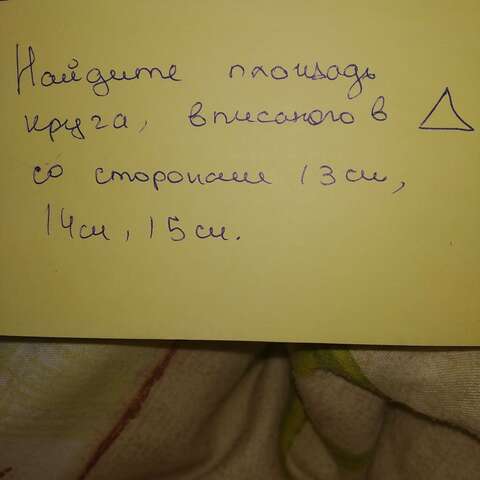 Найдите площадь
круга, вписаного в △
со сторонами 13см,
14см, 15см.